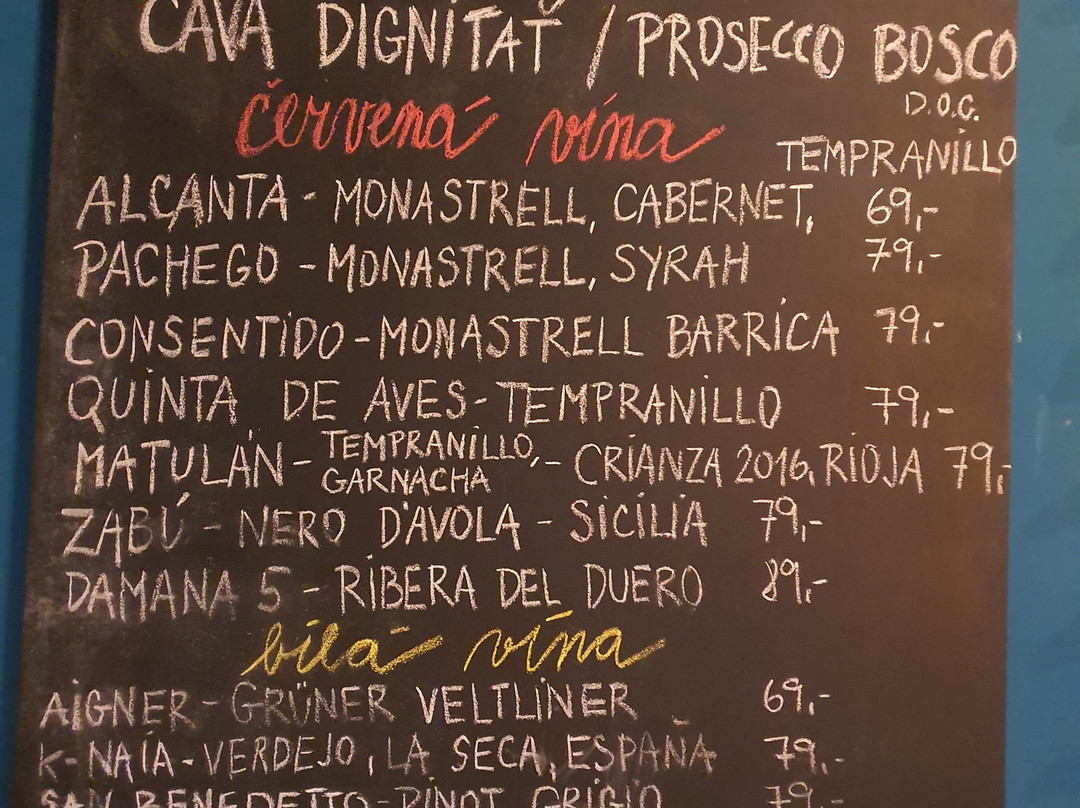 CAVA DIGNITAT / PROSECCO BOSCO
D.O.C.
červená vína
TEMPRANILLO
ALCANTA - MONASTRELL, CABERNET, 69,-
PACHEGO - MONASTRELL, SYRAH 79,-
CONSENTIDO - MONASTRELL BARRICA 79,-
QUINTA DE AVES - TEMPRANILLO 79,-
MATULÁN - TEMPRANILLO, GARNACHA - CRIANZA 2016, RIOJA 79,-
ZABÚ - NERO D'AVOLA - SICILIA 79,-
DAMANA 5 - RIBERA DEL DUERO 89,-
bílá vína
AIGNER - GRÜNER VELTLINER 69,-
K-NAÍA - VERDEJO, LA SECA, ESPAÑA 79,-
SAN BENEDETTO - PINOT GRIGIO 79,-